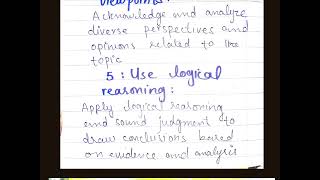 viewpoints:
Acknowledge and analyze
diverse perspectives and
opinions related to the
topic
5: Use logical
reasoning:
Apply logical reasoning
and sound judgment to
draw conclusions based
on evidence and analysis